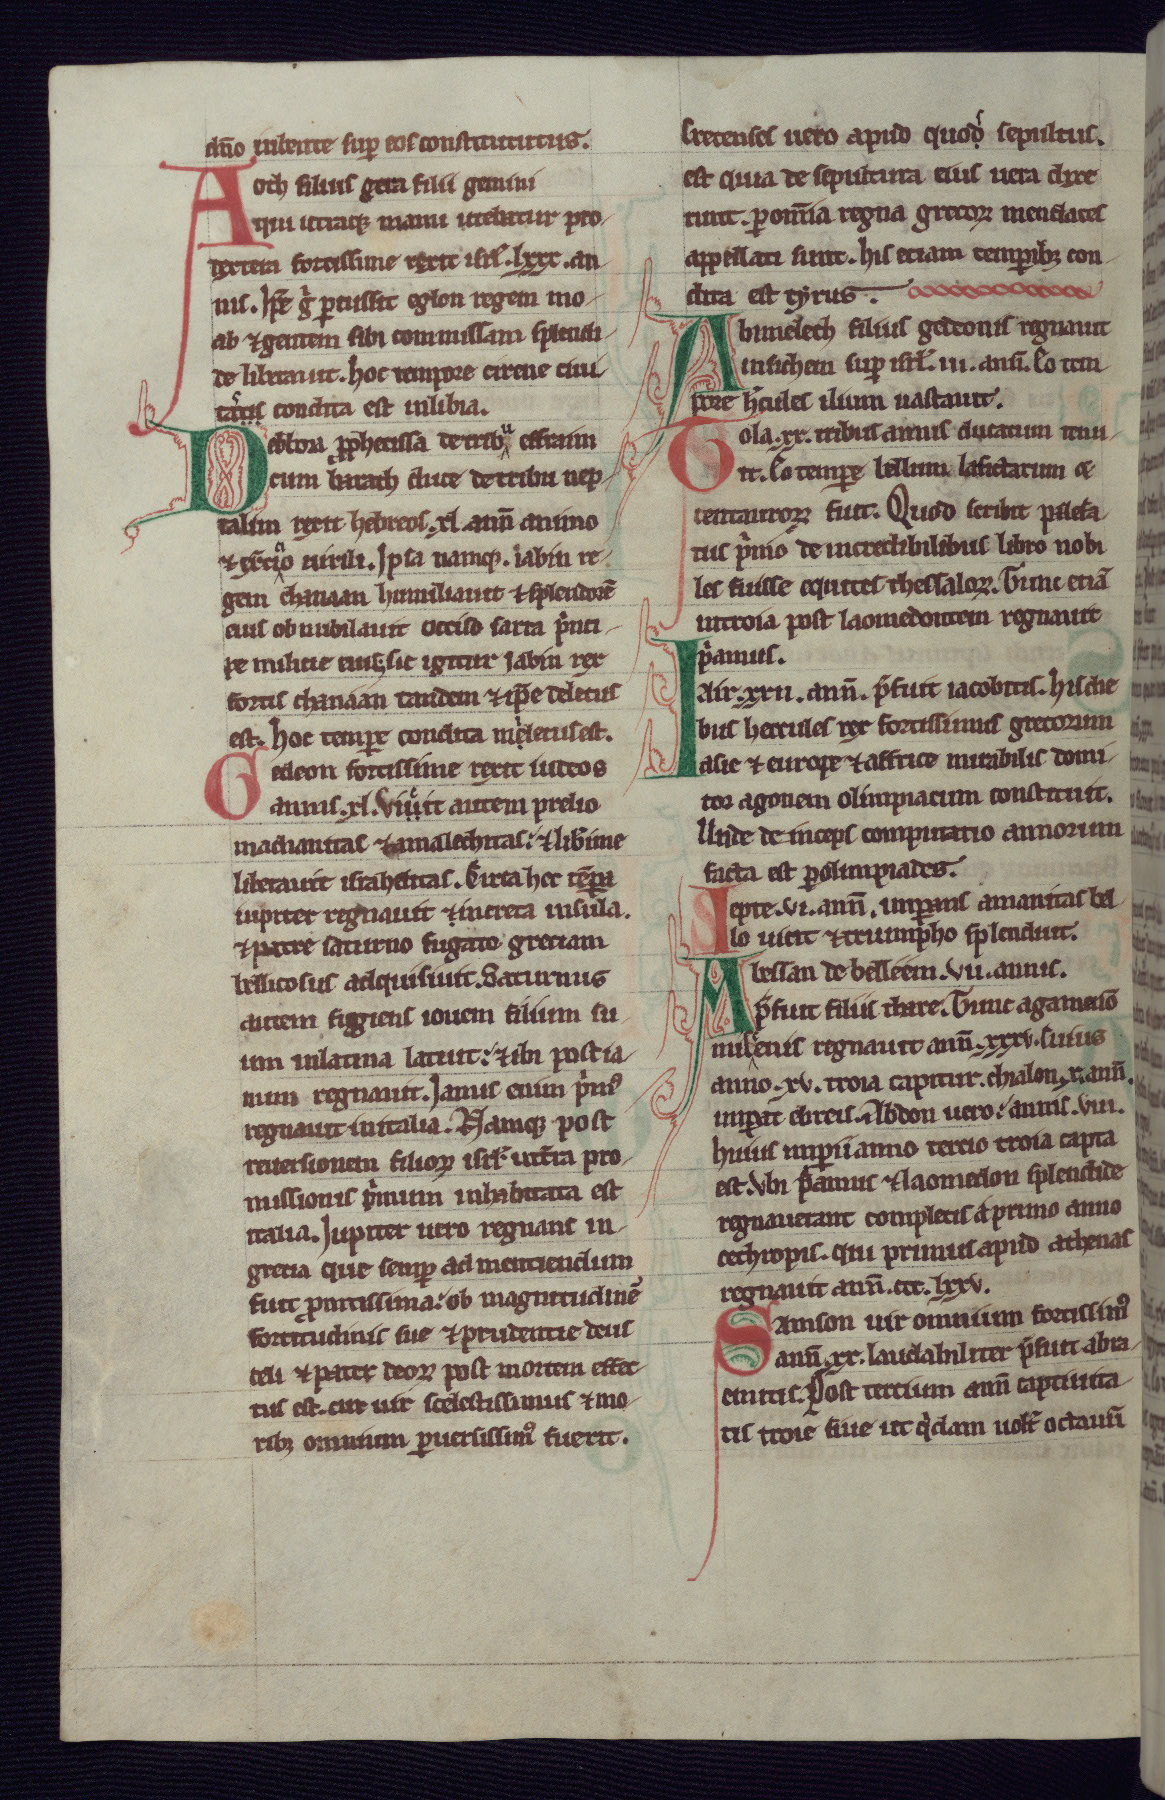 dn̄o iubente sup̄ eos constitutus.
Aoth filius gera filii gemini
qui utraq; manu utebatur pro
dextera fortissime rexit isrl̄. lxxx. an
nis. Ip̄e g̊ p̄cussit eglon regem mo
ab ⁊ gentem sibi commissam splendi
de liberauit. hoc tempore cirene ciui
tatis condita est in libia.
Delbora p̄phetissa de tribu effraim
cum barach duce de tribu nep
talim rexit hebreos. xl. ann̄ animo
uirili. Ipsa namq;. iabin re
gem chanaan humiliauit ⁊ splendorē
eius obnubilauit occiso sarra p̄nci
pe militie eius; sic igitur iabin rex
fortis chanaan tandem ⁊ ip̄e deletus
est. hoc temp̄e condita miletus est.
Gedeon fortissime rexit iudeos
annis. xl. Vicit autem prelio
madianitas ⁊ amalechitas: ⁊ libīme
liberauit israhelitas. Circa hec tēp̄a
iupiter regnauit ⁊ in creta insula.
⁊ patre saturno fugato greciam
bellicosus adquisiuit. Saturnus
autem fugiens iouem filium su
um in latina latuit: ⁊ ibi post ia
num regnauit. Janus enim p̄mꝰ
regnauit in italia. Namq; post
reuersionem filioꝝ isrl̄ ut t̄ra pro
missionis p̄mum inhabitata est
italia. Jupiter uero regnans in
grecia que semp̄ ad mentiendum
fuit p̄mtissima: ob magnitudinē
fortitudinis sue ⁊ prudentie deus
celi ⁊ pater deoꝝ post mortem effec
tus est. cur uir scelestissimus ⁊ mo
rib; omnium p̄uersissimꝰ fuerit.
Cretenses uero apud quos sepultus.
est quia de sepultura eius uera dixe
runt. p̄ om̄ia regna grecoꝝ mendaces
appellati sunt. his etiam tempib; con
dita est tyrus.
Abimelech filius gedeonis regnauit
in sichem sup̄ isrl̄. iii. ann̄. Eo tem
pore h̄cules ilium uastauit.
Tola. xx. tribus annis ducatum tenu
it. Eo temp̄e bellum lafidarum ⁊
centauroꝝ fuit. Quod scribit palefa
tus p̄mo de incredibilibus libro nobi
les fuisse equites thessaloꝝ. Tunc etiā
in troia post laomedontem regnauit
p̄amus.
Iair. xxii. ann̄. p̄fuit iacobitis. his die
bus hercules rex fortissimus grecorum
asie ⁊ europe ⁊ affrice mirabilis domi
tor agonem olimpiacum constituit.
Unde deinceps computatio annorum
facta est p̄ olimpiades.
Iepte. vi. ann̄. imp̄ans amanitas bel
lo uicit ⁊ triumpho splenduit.
Abessan de belleem. vii. annis.
p̄fuit filiis thare. Tunc agamēnō
micenis regnauit ann̄. xxxv. cuius
anno. xv. troia capitur. ahialon. x. ann̄.
imp̄at ebreis. Abdon uero: annis. viii.
huius imperii anno tercio troia capta
est. Vbi p̄amus ⁊ laomedon splendide
regnauerant completis a primo anno
cechropis. qui primus apud athenas
regnauit ann̄. ccc. lxxv.
Samson uir omnium fortissimꝰ
ann̄. xx. laudabiliter p̄fuit abra
emitis. Post tercium ann̄ captiuita
tis troie siue ut q̄dam uolt̄ octauū